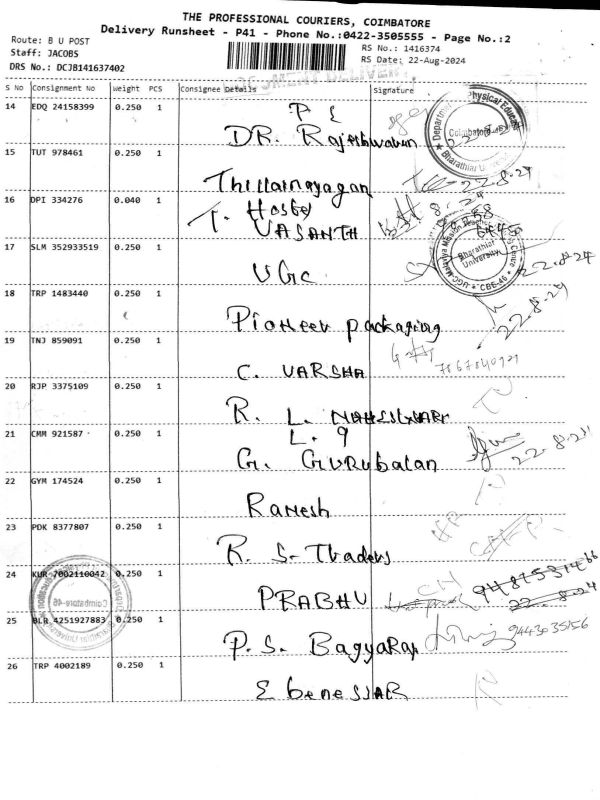 THE PROFESSIONAL COURIERS, COIMBATORE
Delivery Runsheet - P41 - Phone No.:0422-3505555 - Page No.:2
Route: B U POST
Staff: JACOBS
DRS No.: DCJB141637402
RS No.: 1416374
RS Date: 22-Aug-2024
S No Consignment No Weight PCS Consignee Details Signature
14 EDQ 24158399 0.250 1
P E
DR. Rajeshwaran
Department Physical Educat
Coimbatore
Bharathiar U
22.8.24
15 TUT 978461 0.250 1
Thillainayagan
22-8-24
16 DPI 334276 0.040 1
T. Hostel
VASANTH
17 SLM 352933519 0.250 1
UGC
UGC-Malaviya Mission Teacher
Bharathiar
University
CBE-46
22.8.24
18 TRP 1483440 0.250 1
Pioneer packaging
22.8.24
19 TNJ 859091 0.250 1
C. VARSHA
20 RJP 3375109 0.250 1
R. L. MAHESWARI
21 CMM 921587 0.250 1
L. 9
G. GURUbalan
22.8.24
22 GYM 174524 0.250 1
Ramesh
23 PDK 8377807 0.250 1
R. S. Traders
24 KUR 7002110042 0.250 1
PRABHU
22.8.24
Coimbatore-46
25 BLR 4251927883 0.250 1
P. S. BagyaRaj
9443035156
26 TRP 4002189 0.250 1
EbenessAR